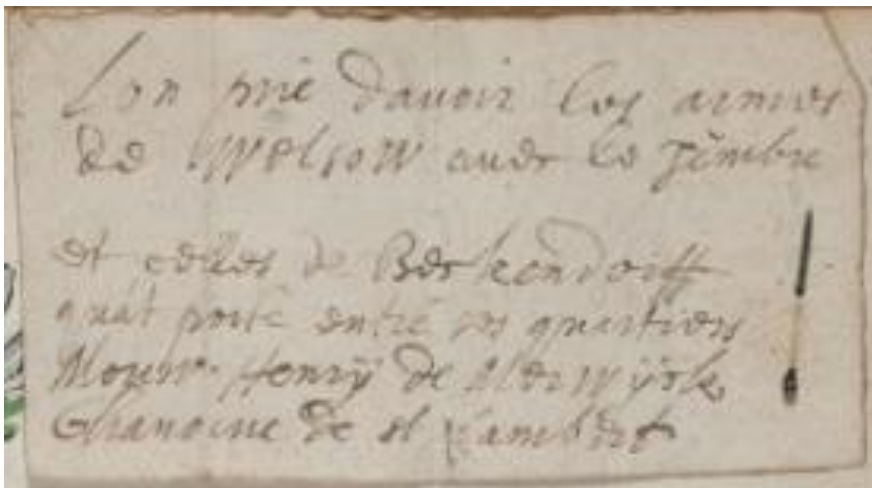 Lon prie dauoir les armes
de Welsow auec le timbre
et celles de Berkendorff
aiāt porté entre ses quartiers
Monsr. Henrÿ de Merwÿck
Chanoine de st Lambert